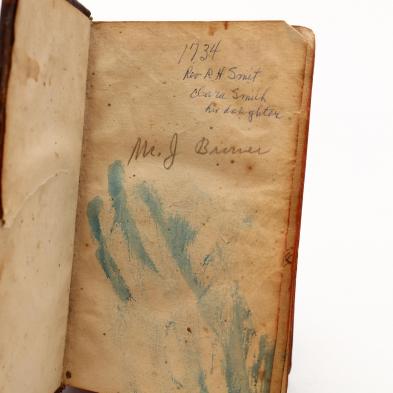 1734
Rev R H Smit
Clara Smith
his daughter
Mc. J Bruner